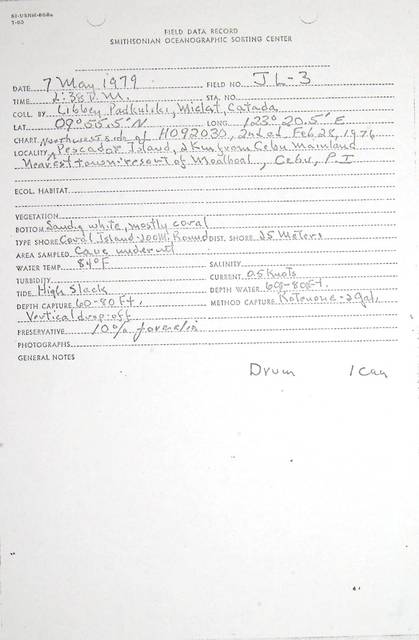 SI-USNM-868a
1-65
FIELD DATA RECORD
SMITHSONIAN OCEANOGRAPHIC SORTING CENTER
DATE 7 May 1979 FIELD NO. JL-3
TIME 2:38 P.M. STA. NO.
COLL. BY Libbey, Paskuliki, Mielat, Catada
LAT. 09° 55.5' N LONG. 123° 20.5' E
CHART HO92030, 2nd ed Feb 28, 1976
LOCALITY Northwest side of Pescador Island, 2 Km from Cebu mainland
Nearest town: resort of Moalboal, Cebu, P.I
ECOL. HABITAT
VEGETATION
BOTTOM Sandy white, mostly coral
TYPE SHORE Coral Island DIST. SHORE 25 Meters
AREA SAMPLED Cave undercut
WATER TEMP. 84°F SALINITY
TURBIDITY CURRENT 0.5 Knots
TIDE High Slack DEPTH WATER 60-80 Ft.
DEPTH CAPTURE 60-80 Ft. METHOD CAPTURE Rotenone-2 gal.
Vertical drop-off
PRESERVATIVE 10% formalin
PHOTOGRAPHS
GENERAL NOTES
Drum 1 can